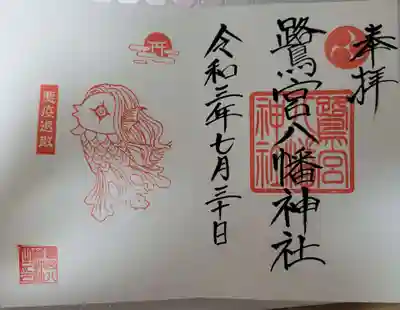 奉拝
鷺宮八幡神社
鷺宮八幡神社
令和三年七月三十日
悪疫退散